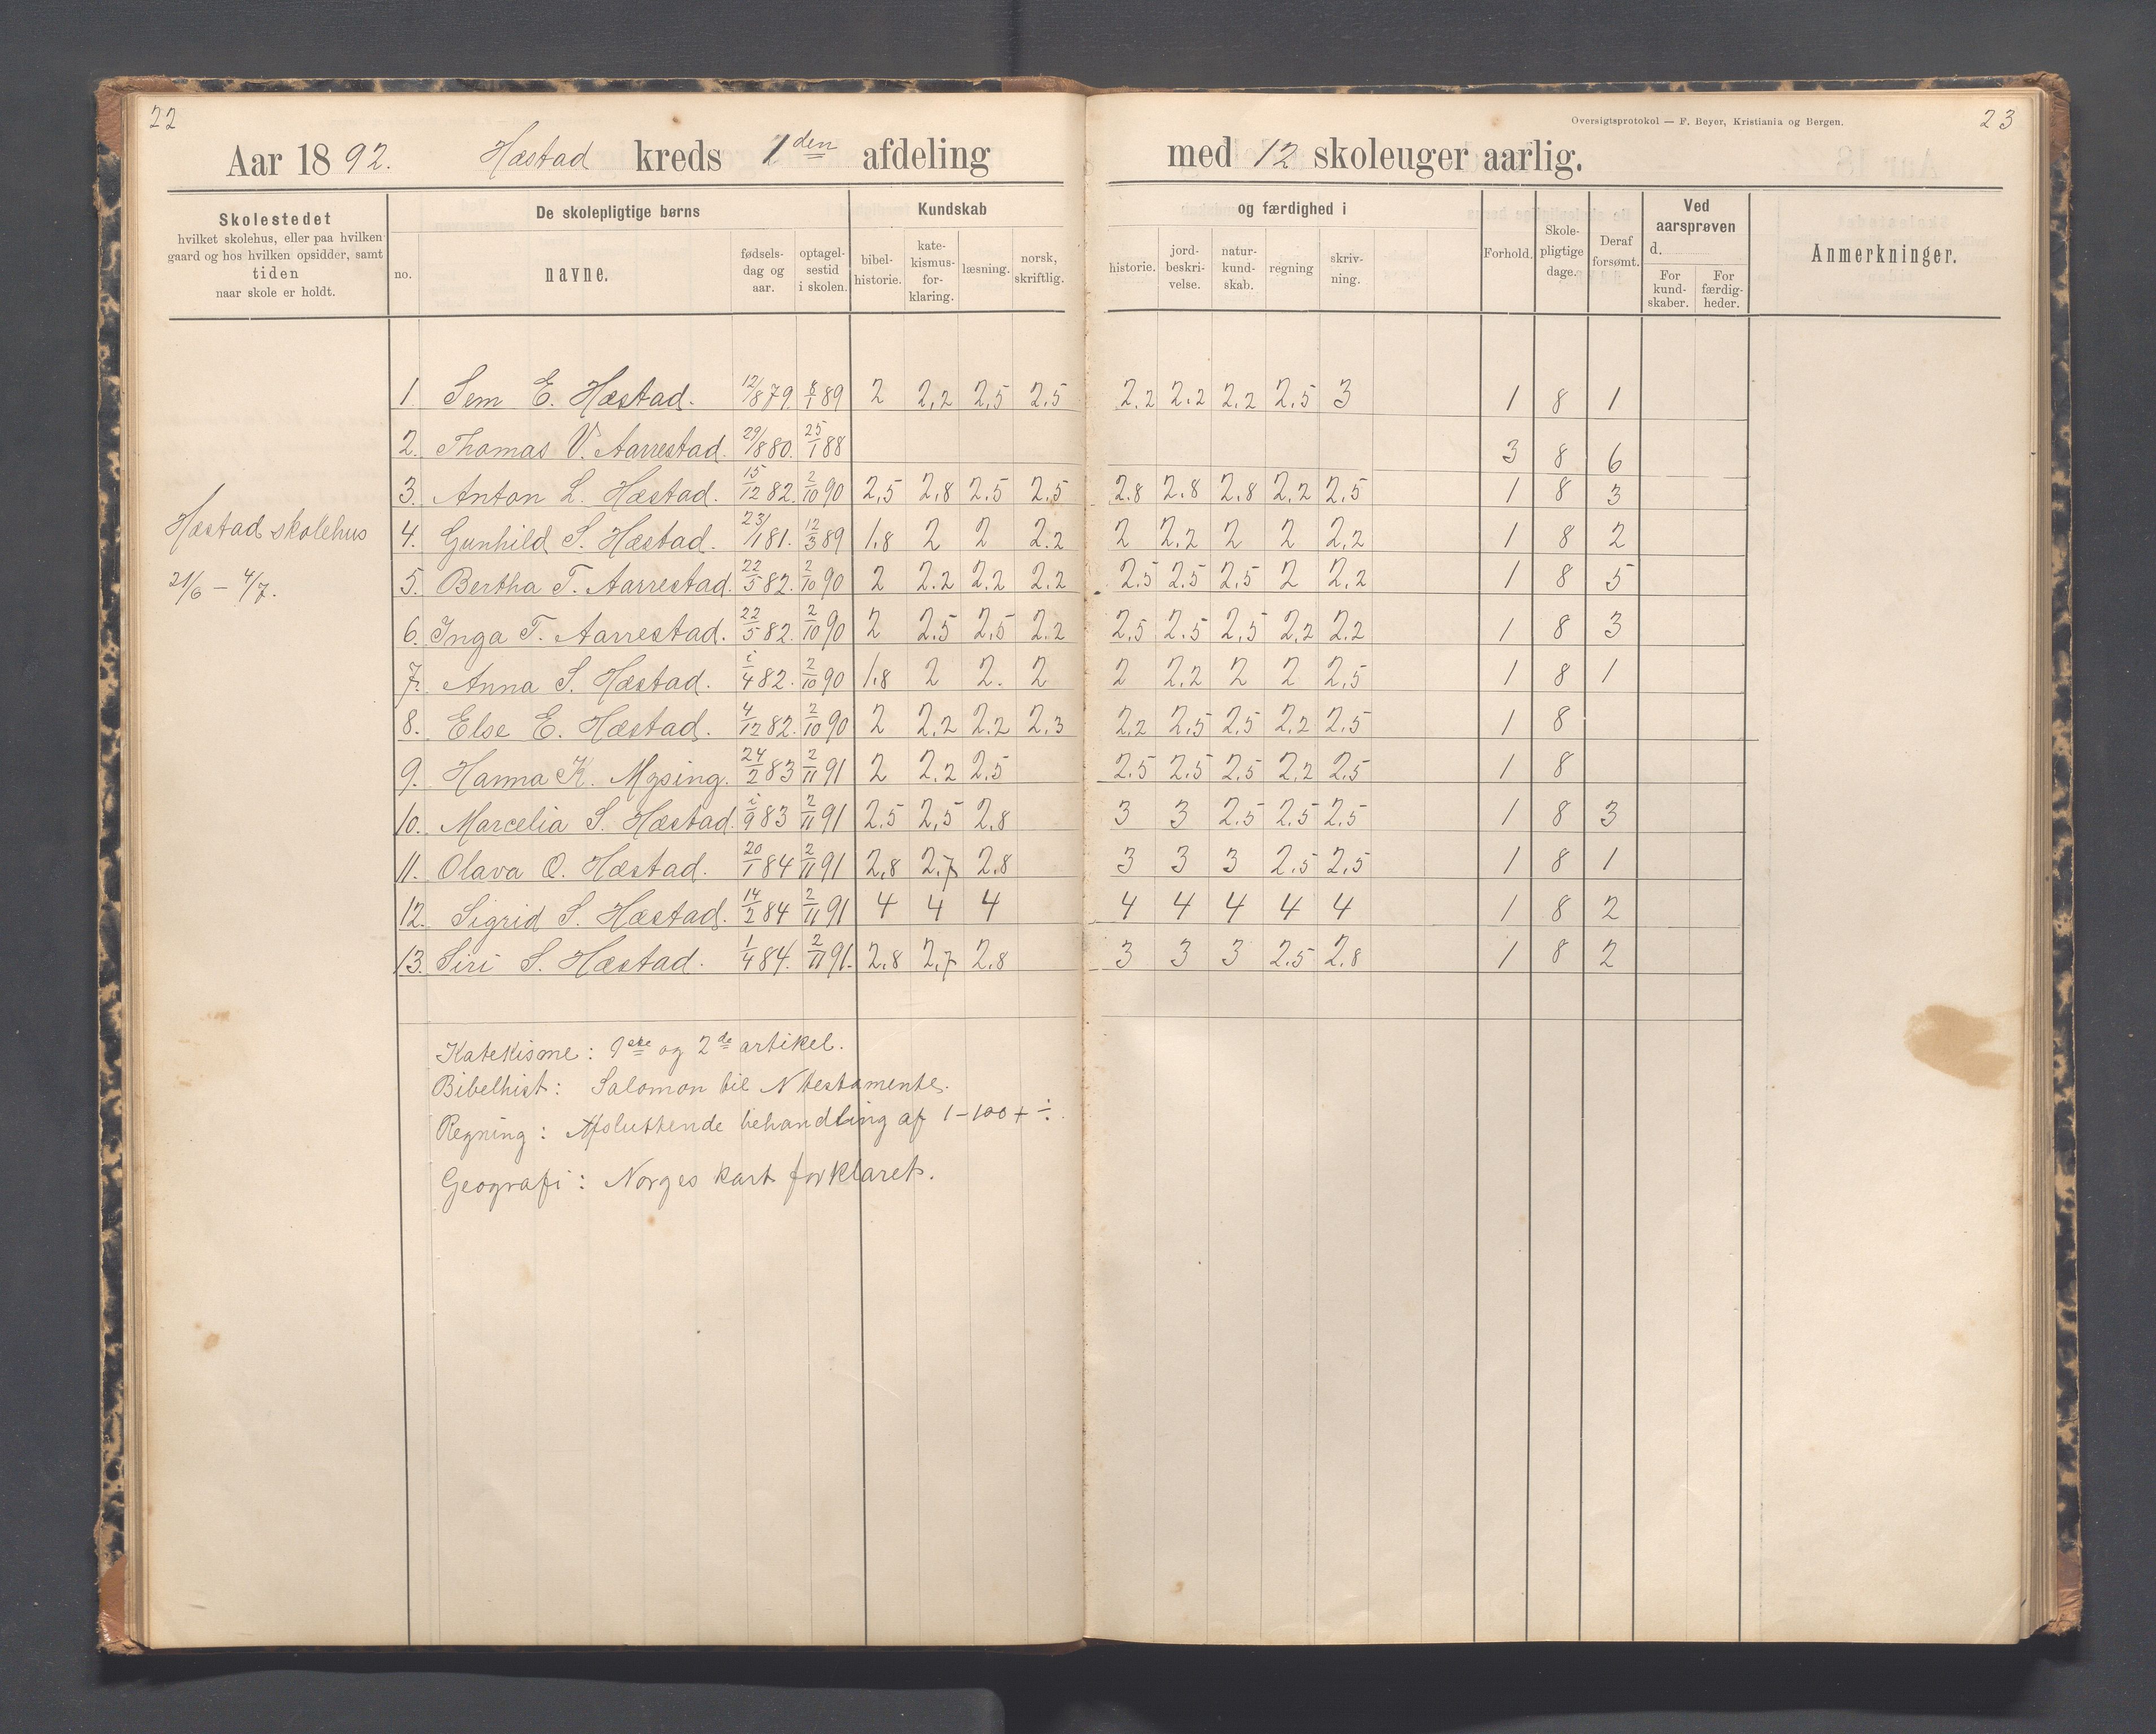 22
Oversigtsprotokol — F. Beyer, Kristiania og Bergen.
23
Aar 1892. Hæstad kreds 1den afdeling med 12 skoleuger aarlig.
Skolestedet
hvilket skolehus, eller paa hvilken
gaard og hos hvilken opsidder, samt
tiden
naar skole er holdt.
De skolepligtige børns
no.
navne.
fødsels-
dag og
aar.
optagel-
sestid
i skolen.
Kundskab
bibel-
historie.
kate-
kismus-
for-
klaring.
læsning.
norsk,
skriftlig.
og færdighed i
historie.
jord-
beskri-
velse.
natur-
kund-
skab.
regning
skriv-
ning.
Forhold.
Skole-
pligtige
dage.
Deraf
forsømt.
Ved
aarsprøven
d.
For
kund-
skaber.
For
færdig-
heder.
Anmerkninger.
Hæstad skolehus
21/6 – 4/7.
1. Sem E. Hæstad. 12/8 79. 8/1 89 2 2,2 2,5 2,5 2.2 2.2 2.2 2.5 3 1 8 1
2. Thomas V. Aarrestad. 29/8 80. 25/1 88 3 8 6
3. Anton L. Hæstad. 15/12 82. 2/10 90 2,5 2,8 2.5 2.5 2.8 2.8 2.8 2,2 2,5 1 8 3
4. Gunhild S. Hæstad. 23/1 81. 12/3 89 1.8 2 2 2.2 2 2,2 2 2 2,2 1 8 2
5. Bertha T. Aarrestad. 22/5 82. 2/10 90 2 2.2 2.2 2.2 2.5 2.5 2,5 2 2,2 1 8 5
6. Inga T. Aarrestad. 22/5 82. 2/10 90 2 2.5 2,5 2.2 2,5 2.5 2,5 2,2 2.2 1 8 3
7. Anna S. Hæstad. i/4 82. 2/10 90 1.8 2 2. 2 2 2,2 2 2 2,5 1 8 1
8. Else E. Hæstad. 4/12 82. 2/10 90 2 2,2 2.2 2,3 2,2 2,5 2,5 2,2 2,5 1 8
9. Hanna K. Mysing. 24/2 83 2/11 91 2 2,2 2,5 2.5 2.5 2.5 2,2 2,5 1 8
10. Marcelia S. Hæstad. i/9 83 2/11 91 2.5 2,5 2.8 3 3 2.5 2.5 2.5 1 8 3
11. Olava O. Hæstad. 20/1 84 2/11 91 2,8 2.7 2.8 3 3 3 2.5 2,5 1 8 1
12. Sigrid S. Hæstad. 14/2 84 2/11 91 4 4 4 4 4 4 4 4 1 8 2
13. Siri S. Hæstad. 1/4 84. 2/11 91. 2.8 2,7 2.8 3 3 3 2.5 2.8 1 8 2
Katekisme: 1ste og 2de artikel.
Bibelhist: Salomon til N testamente.
Regning: Afsluttende behandling af 1–100 + ÷.
Geografi: Norges kart forklaret.